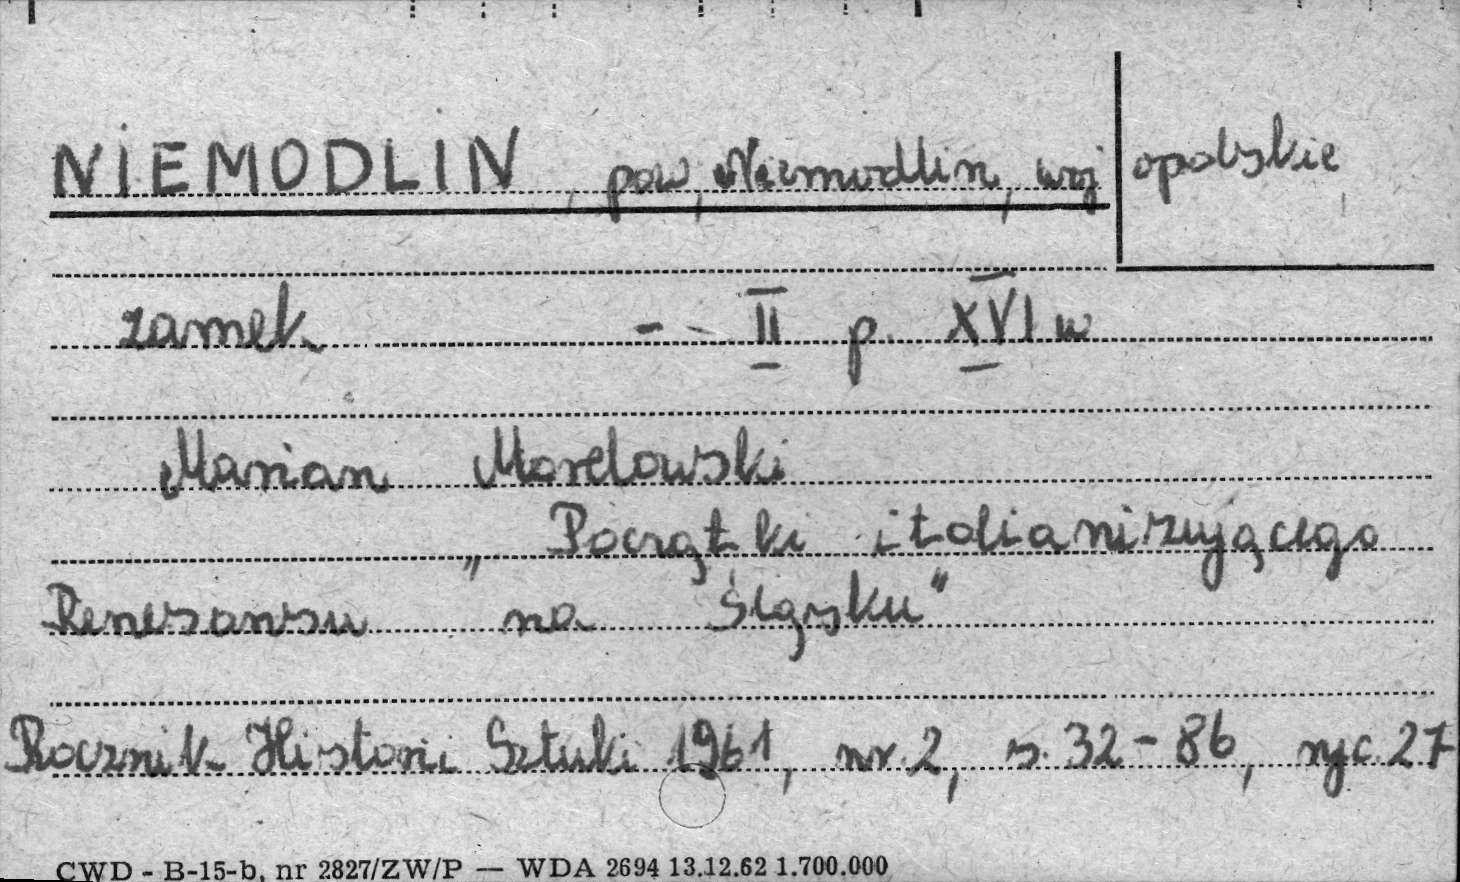 NIEMODLIN, pow, Niemodlin, woj opolskie
zamek - II p. XVI w
Marian Morelowski
„Początki italianizującego
Renesansu na Śląsku"
Rocznik Historii Sztuki 1961, nr.2, s. 32-86, ryc. 27
CWD - B-15-b, nr 2827/ZW/P — WDA 2694 13.12.62 1.700.000